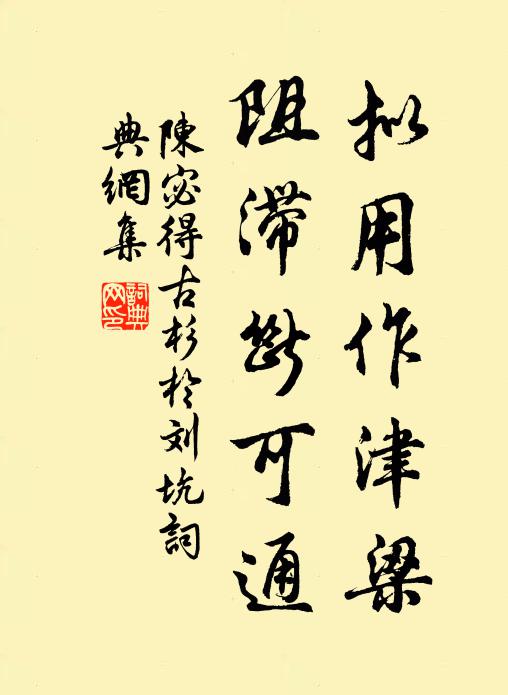 拟用作津梁
阻滞断可通
陳宓得古杉於刘坑詞
典網集
詞典
网印